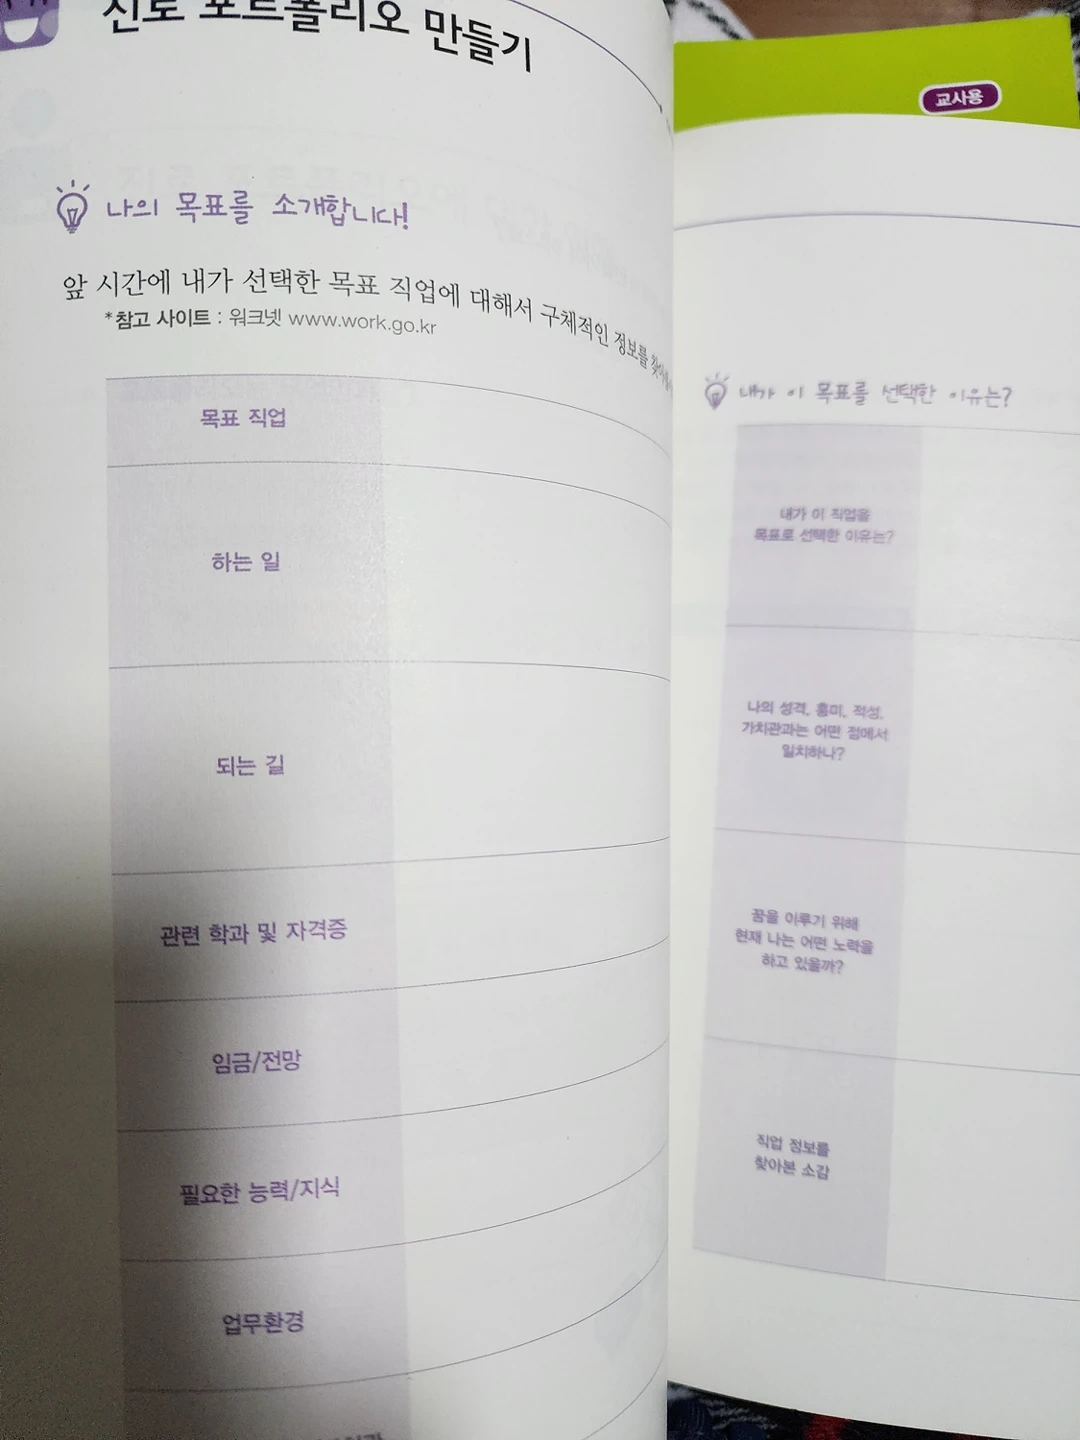 진로 포트폴리오 만들기
나의 목표를 소개합니다!
앞 시간에 내가 선택한 목표 직업에 대해서 구체적인 정보를
*참고 사이트 : 워크넷 www.work.go.kr
목표 직업
하는 일
되는 길
관련 학과 및 자격증
임금/전망
필요한 능력/지식
업무환경
교사용
내가 이 목표를 선택한 이유는?
내가 이 직업을
목표로 선택한 이유는?
나의 성격, 흥미, 적성,
가치관과는 어떤 점에서
일치하나?
꿈을 이루기 위해
현재 나는 어떤 노력을
하고 있을까?
직업 정보를
찾아본 소감